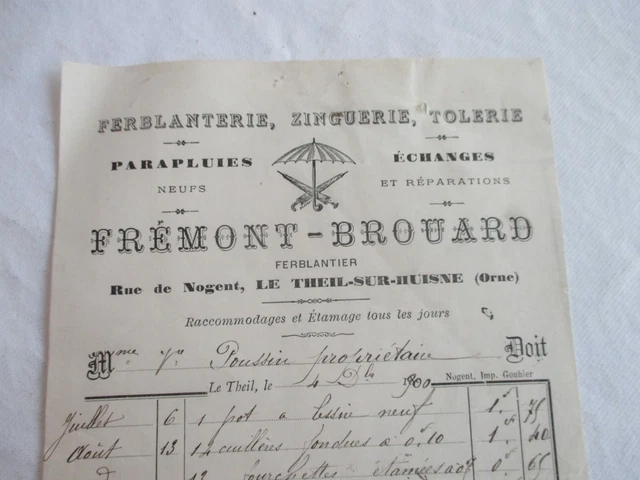 FERBLANTERIE, ZINGUERIE, TOLERIE
PARAPLUIES
NEUFS
ÉCHANGES
ET RÉPARATIONS
FRÉMONT-BROUARD
FERBLANTIER
Rue de Nogent, LE THEIL-SUR-HUISNE (Orne)
Raccommodages et Étamage tous les jours
Mme Vve Poussin propriétaire Doit
Le Theil, le 4 Dbre 1900 Nogent, Imp. Gouhier
Juillet 6 1 pot à neuf 1 75
Août 13 14 cuillères fondues à 0,10 1 40
12 fourchettes étamées à 0 65